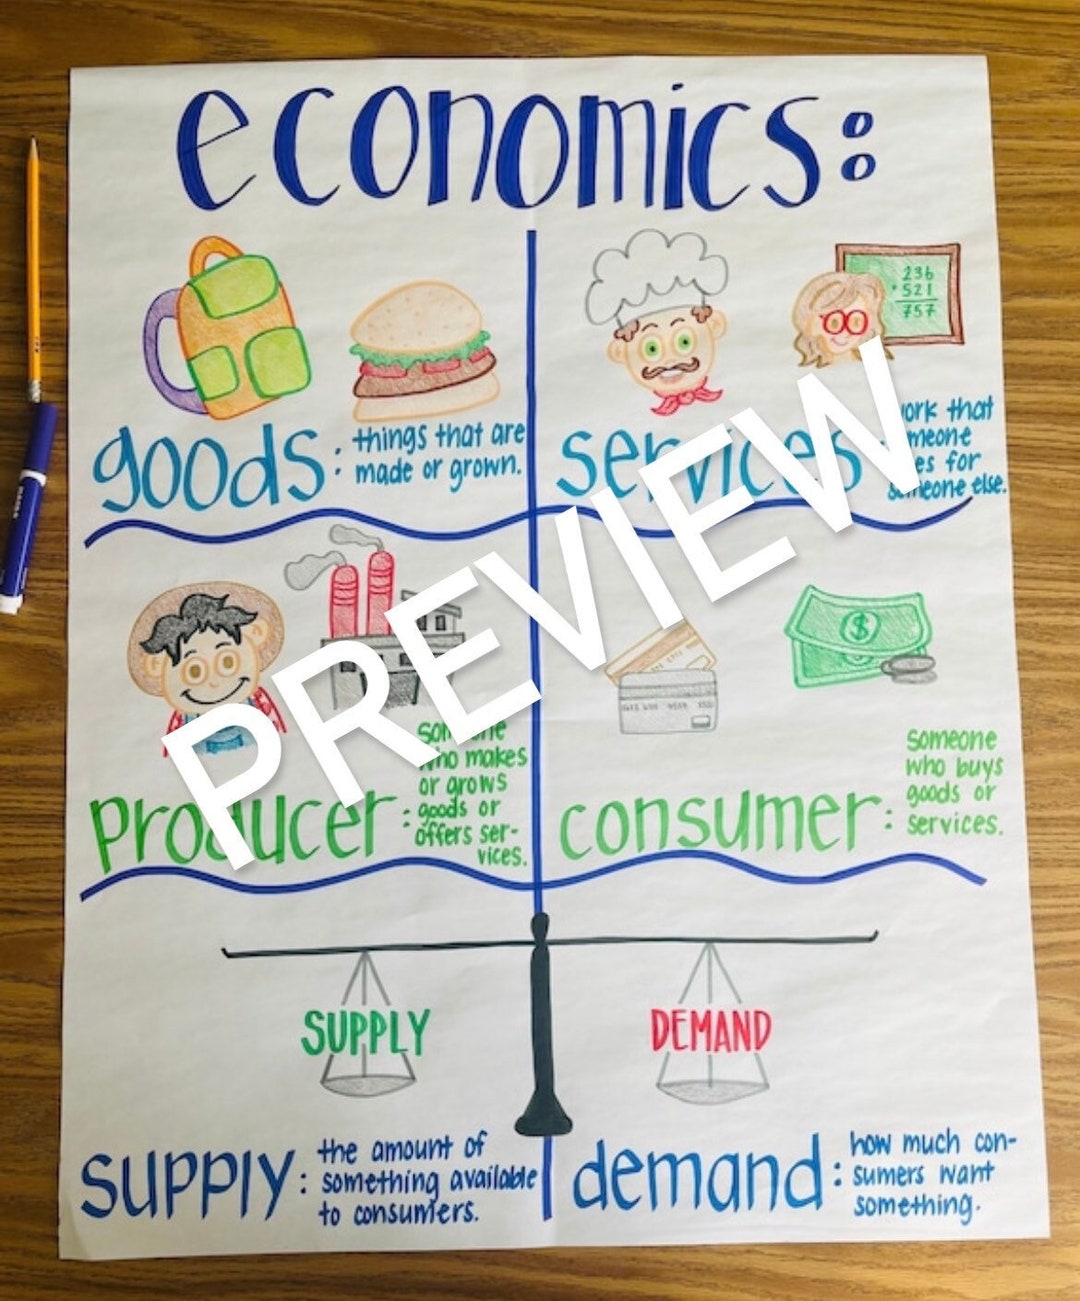 economics:
236
+521
757
goods: things that are
made or grown.
services: work that
someone
does for
someone else.
PREVIEW
producer: someone
who makes
or grows
goods or
offers ser-
vices.
consumer: someone
who buys
goods or
services.
$
SUPPLY
DEMAND
supply: the amount of
something available
to consumers.
demand: how much con-
sumers want
something.